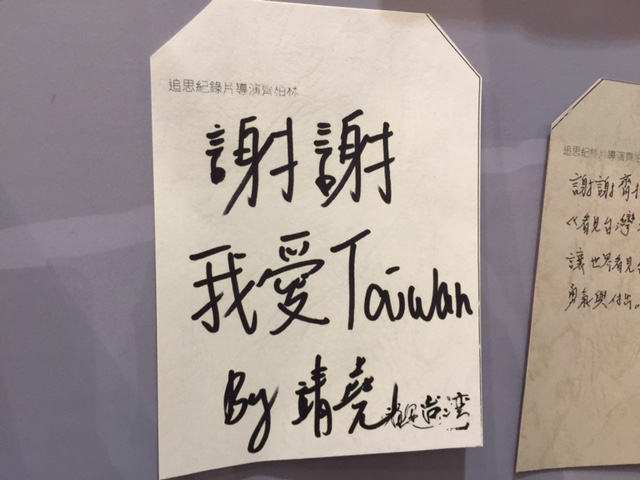 追思紀錄片導演齊柏林
謝謝
我愛Taiwan
By 靖堯
看見台灣
追思紀錄片導演齊
謝謝齊
《看見台灣
讓世界看見
勇氣與付出